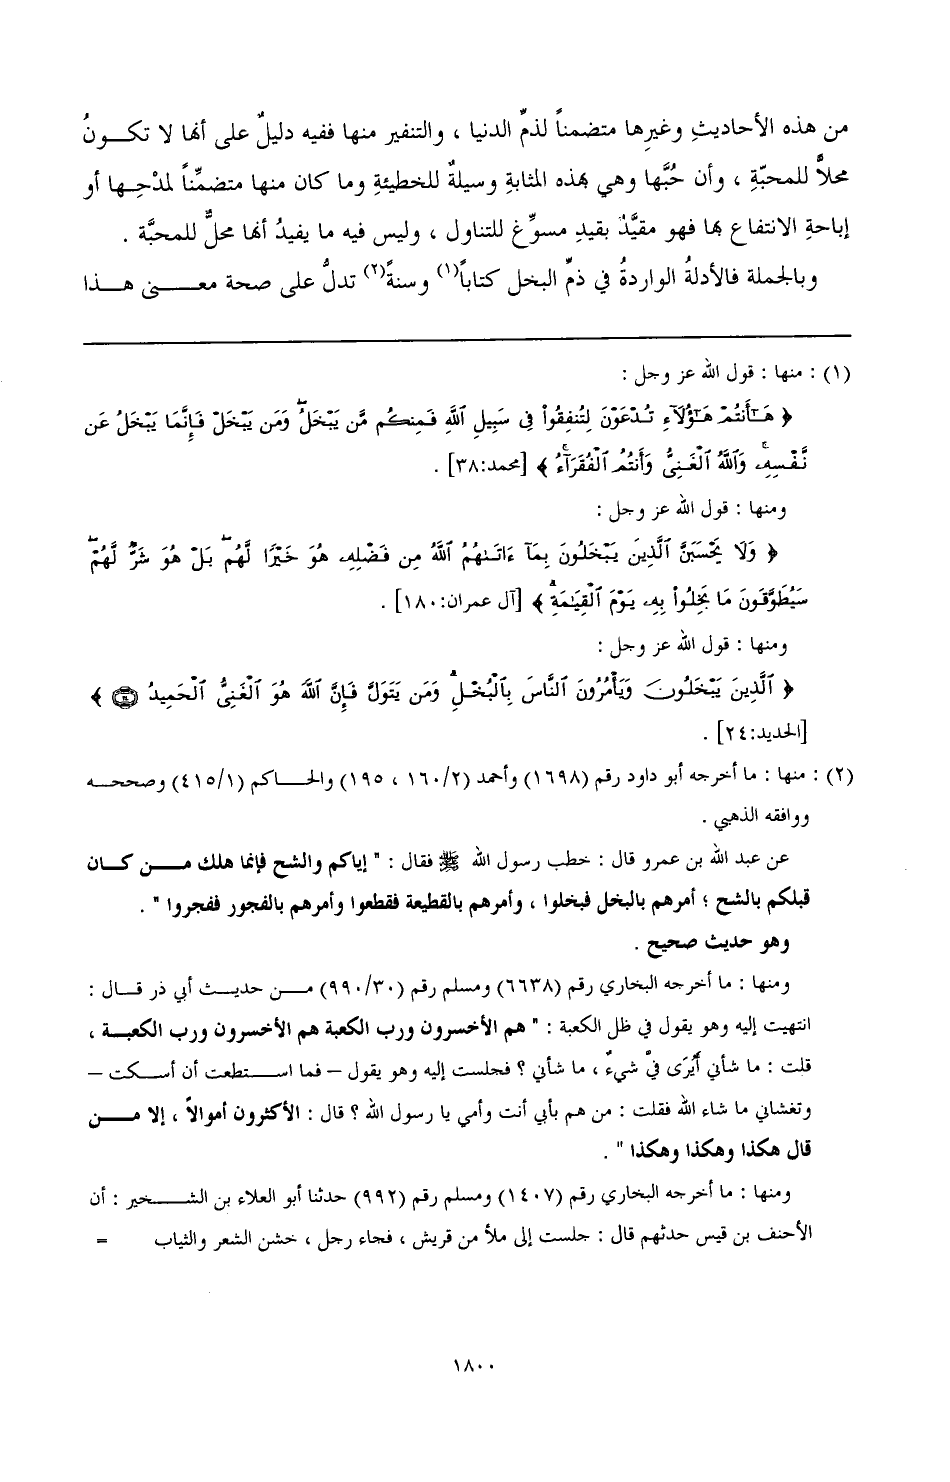 من هذه الأحاديثِ وغيرها متضمناً لذمِّ الدنيا ، والتنفير منها ففيه دليلٌ على أنها لا تكــونُ
محلاًّ للمحبّةِ ، وأن حُبَّها وهي بهذه المثابةِ وسيلةٌ للخطيئةِ وما كان منها متضمِّناً لمدْحِها أو
إباحةِ الانتفاع بها فهو مقيَّدٌ بقيدٍ مسوِّغ للتناول ، وليس فيه ما يفيدُ أنها محلٌّ للمحبَّة .
وبالجملة فالأدلةُ الواردةُ في ذمِّ البخل كتاباً(١) وسنةً(٢) تدلُّ على صحة معـــنى هــذا
(١) : منها : قول الله عز وجل :
﴿ هَـٰٓأَنتُمْ هَـٰٓؤُلَآءِ تُدْعَوْنَ لِتُنفِقُوا۟ فِى سَبِيلِ ٱللَّهِ فَمِنكُم مَّن يَبْخَلُ ۖ وَمَن يَبْخَلْ فَإِنَّمَا يَبْخَلُ عَن
نَّفْسِهِۦ ۚ وَٱللَّهُ ٱلْغَنِىُّ وَأَنتُمُ ٱلْفُقَرَآءُ ۚ ﴾ [محمد:٣٨] .
ومنها : قول الله عز وجل :
﴿ وَلَا يَحْسَبَنَّ ٱلَّذِينَ يَبْخَلُونَ بِمَآ ءَاتَىٰهُمُ ٱللَّهُ مِن فَضْلِهِۦ هُوَ خَيْرًا لَّهُم ۖ بَلْ هُوَ شَرٌّ لَّهُمْ ۖ
سَيُطَوَّقُونَ مَا بَخِلُوا۟ بِهِۦ يَوْمَ ٱلْقِيَـٰمَةِ ۗ ﴾ [آل عمران:١٨٠] .
ومنها : قول الله عز وجل :
﴿ ٱلَّذِينَ يَبْخَلُونَ وَيَأْمُرُونَ ٱلنَّاسَ بِٱلْبُخْلِ ۗ وَمَن يَتَوَلَّ فَإِنَّ ٱللَّهَ هُوَ ٱلْغَنِىُّ ٱلْحَمِيدُ ﴾
[الحديد:٢٤] .
(٢) : منها : ما أخرجه أبو داود رقم (١٦٩٨) وأحمد (١٦٠/٢ ، ١٩٥) والحــاكم (٤١٥/١) وصححــه
ووافقه الذهبي .
عن عبد الله بن عمرو قال : خطب رسول الله ﷺ فقال : " إياكم والشح فإنما هلك مــن كــان
قبلكم بالشح ؛ أمرهم بالبخل فبخلوا ، وأمرهم بالقطيعة فقطعوا وأمرهم بالفجور ففجروا " .
وهو حديث صحيح .
ومنها : ما أخرجه البخاري رقم (٦٦٣٨) ومسلم رقم (٩٩٠/٣٠) مــن حديــث أبي ذر قــال :
انتهيت إليه وهو يقول في ظل الكعبة : " هم الأخسرون ورب الكعبة هم الأخسرون ورب الكعبــة ،
قلت : ما شأني أيُرَى فيَّ شيءٌ ، ما شأني ؟ فجلست إليه وهو يقول – فما اســتطعت أن أســكت –
وتغشاني ما شاء الله فقلت : من هم بأبي أنت وأمي يا رسول الله ؟ قال : الأكثرون أموالاً ، إلا مــن
قال هكذا وهكذا وهكذا " .
ومنها : ما أخرجه البخاري رقم (١٤٠٧) ومسلم رقم (٩٩٢) حدثنا أبو العلاء بن الشــخير : أن
الأحنف بن قيس حدثهم قال : جلست إلى ملأ من قريش ، فجاء رجل ، خشن الشعر والثياب =
١٨٠٠